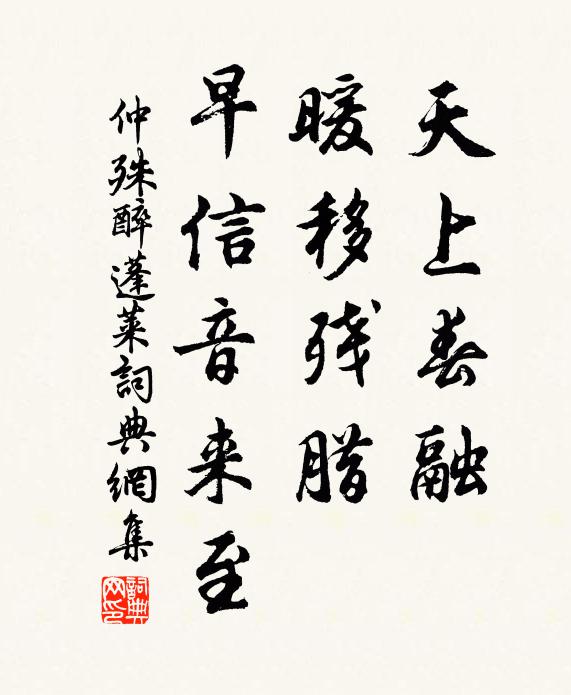 天上春融
暖移残腊
早信音来至
仲殊醉蓬莱詞典網集
詞典网印